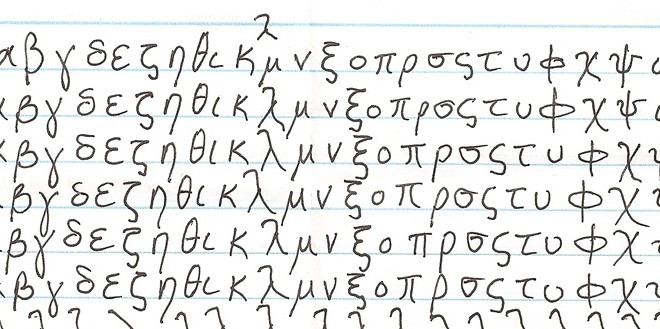 λ
α β γ δ ε ζ η θ ι κ μ ν ξ ο π ρ σ ς τ υ φ χ ψ
α β γ δ ε ζ η θ ι κ λ μ ν ξ ο π ρ σ ς τ υ φ χ ψ
α β γ δ ε ζ η θ ι κ λ μ ν ξ ο π ρ σ ς τ υ φ χ
β γ δ ε ζ η θ ι κ λ μ ν ξ ο π ρ σ ς τ υ φ χ
β γ δ ε ζ η θ ι κ λ μ ν ξ ο π ρ σ ς τ υ φ χ
α β γ δ ε ζ η θ ι κ λ μ ν ξ ο π ρ σ ς τ υ φ χ